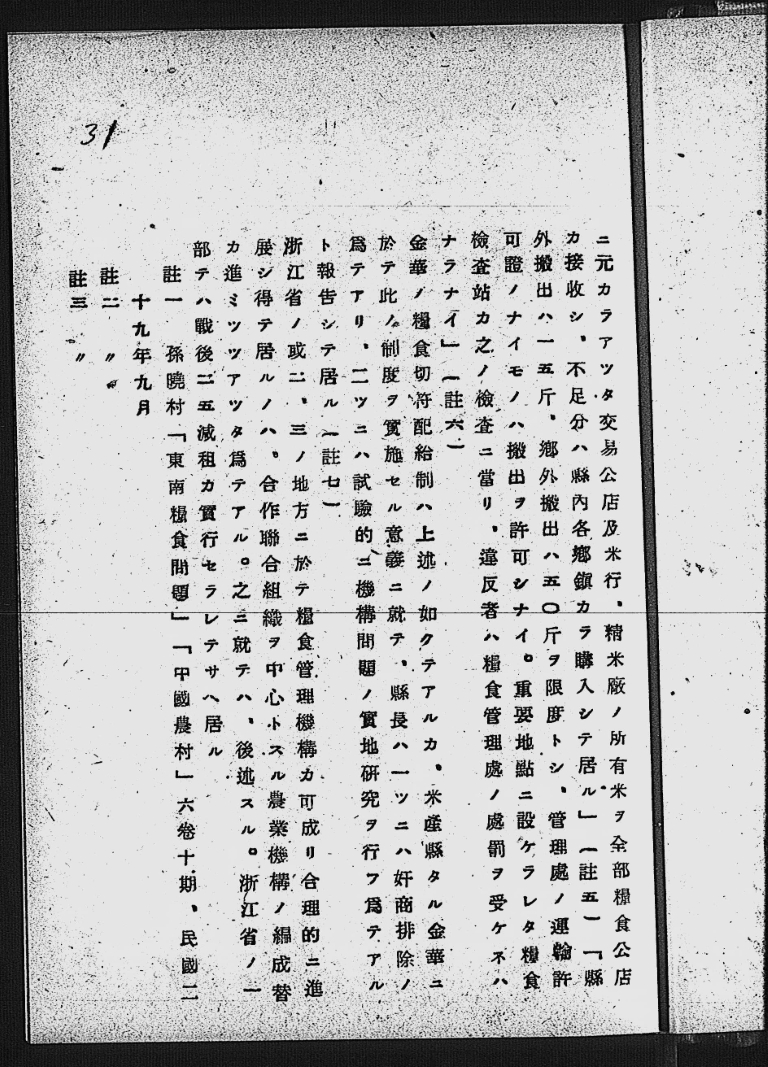 31
ニ元カラアツタ交易公店及米行、精米廠ノ所有米ヲ全部糧食公店
カ接收シ、不足分ハ縣內各鄕鎭カラ購入シテ居ル」(註五)「縣
外搬出ハ一五斤、鄕外搬出ハ五〇斤ヲ限度トシ、管理處ノ運輸許
可證ノナイモノハ搬出ヲ許可シナイ。重要地點ニ設ケラレタ糧食
檢査站カ之ノ檢査ニ當リ、違反者ハ糧食管理處ノ處罰ヲ受ケネハ
ナラナイ」(註六)
金華ノ糧食切符配給制ハ上述ノ如クテアルカ、米產縣タル金華ニ
於テ此ノ制度ヲ實施セル意義ニ就テ、縣長ハ一ツニハ奸商排除ノ
爲テアリ、二ツニハ試驗的ニ機構問題ノ實地硏究ヲ行フ爲テアル
ト報吿シテ居ル(註七)
浙江省ノ或二、三ノ地方ニ於テ糧食管理機構カ可成リ合理的ニ進
展シ得テ居ルノハ、合作聯合組織ヲ中心トスル農業機構ノ編成替
カ進ミツツアツタ爲テアル。之ニ就テハ、後述スル。浙江省ノ一
部テハ戰後二五減租カ實行セラレテサヘ居ル
註一 孫曉村「東南糧食問題」「中國農村」六卷十期、民國二
十九年九月
註二 〃
註三 〃